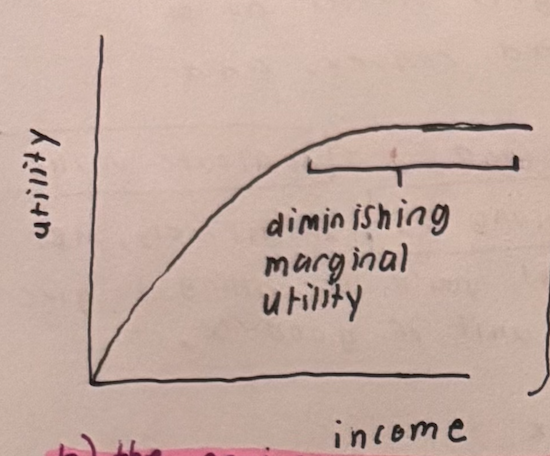 utility
diminishing
marginal
utility
income
b) the